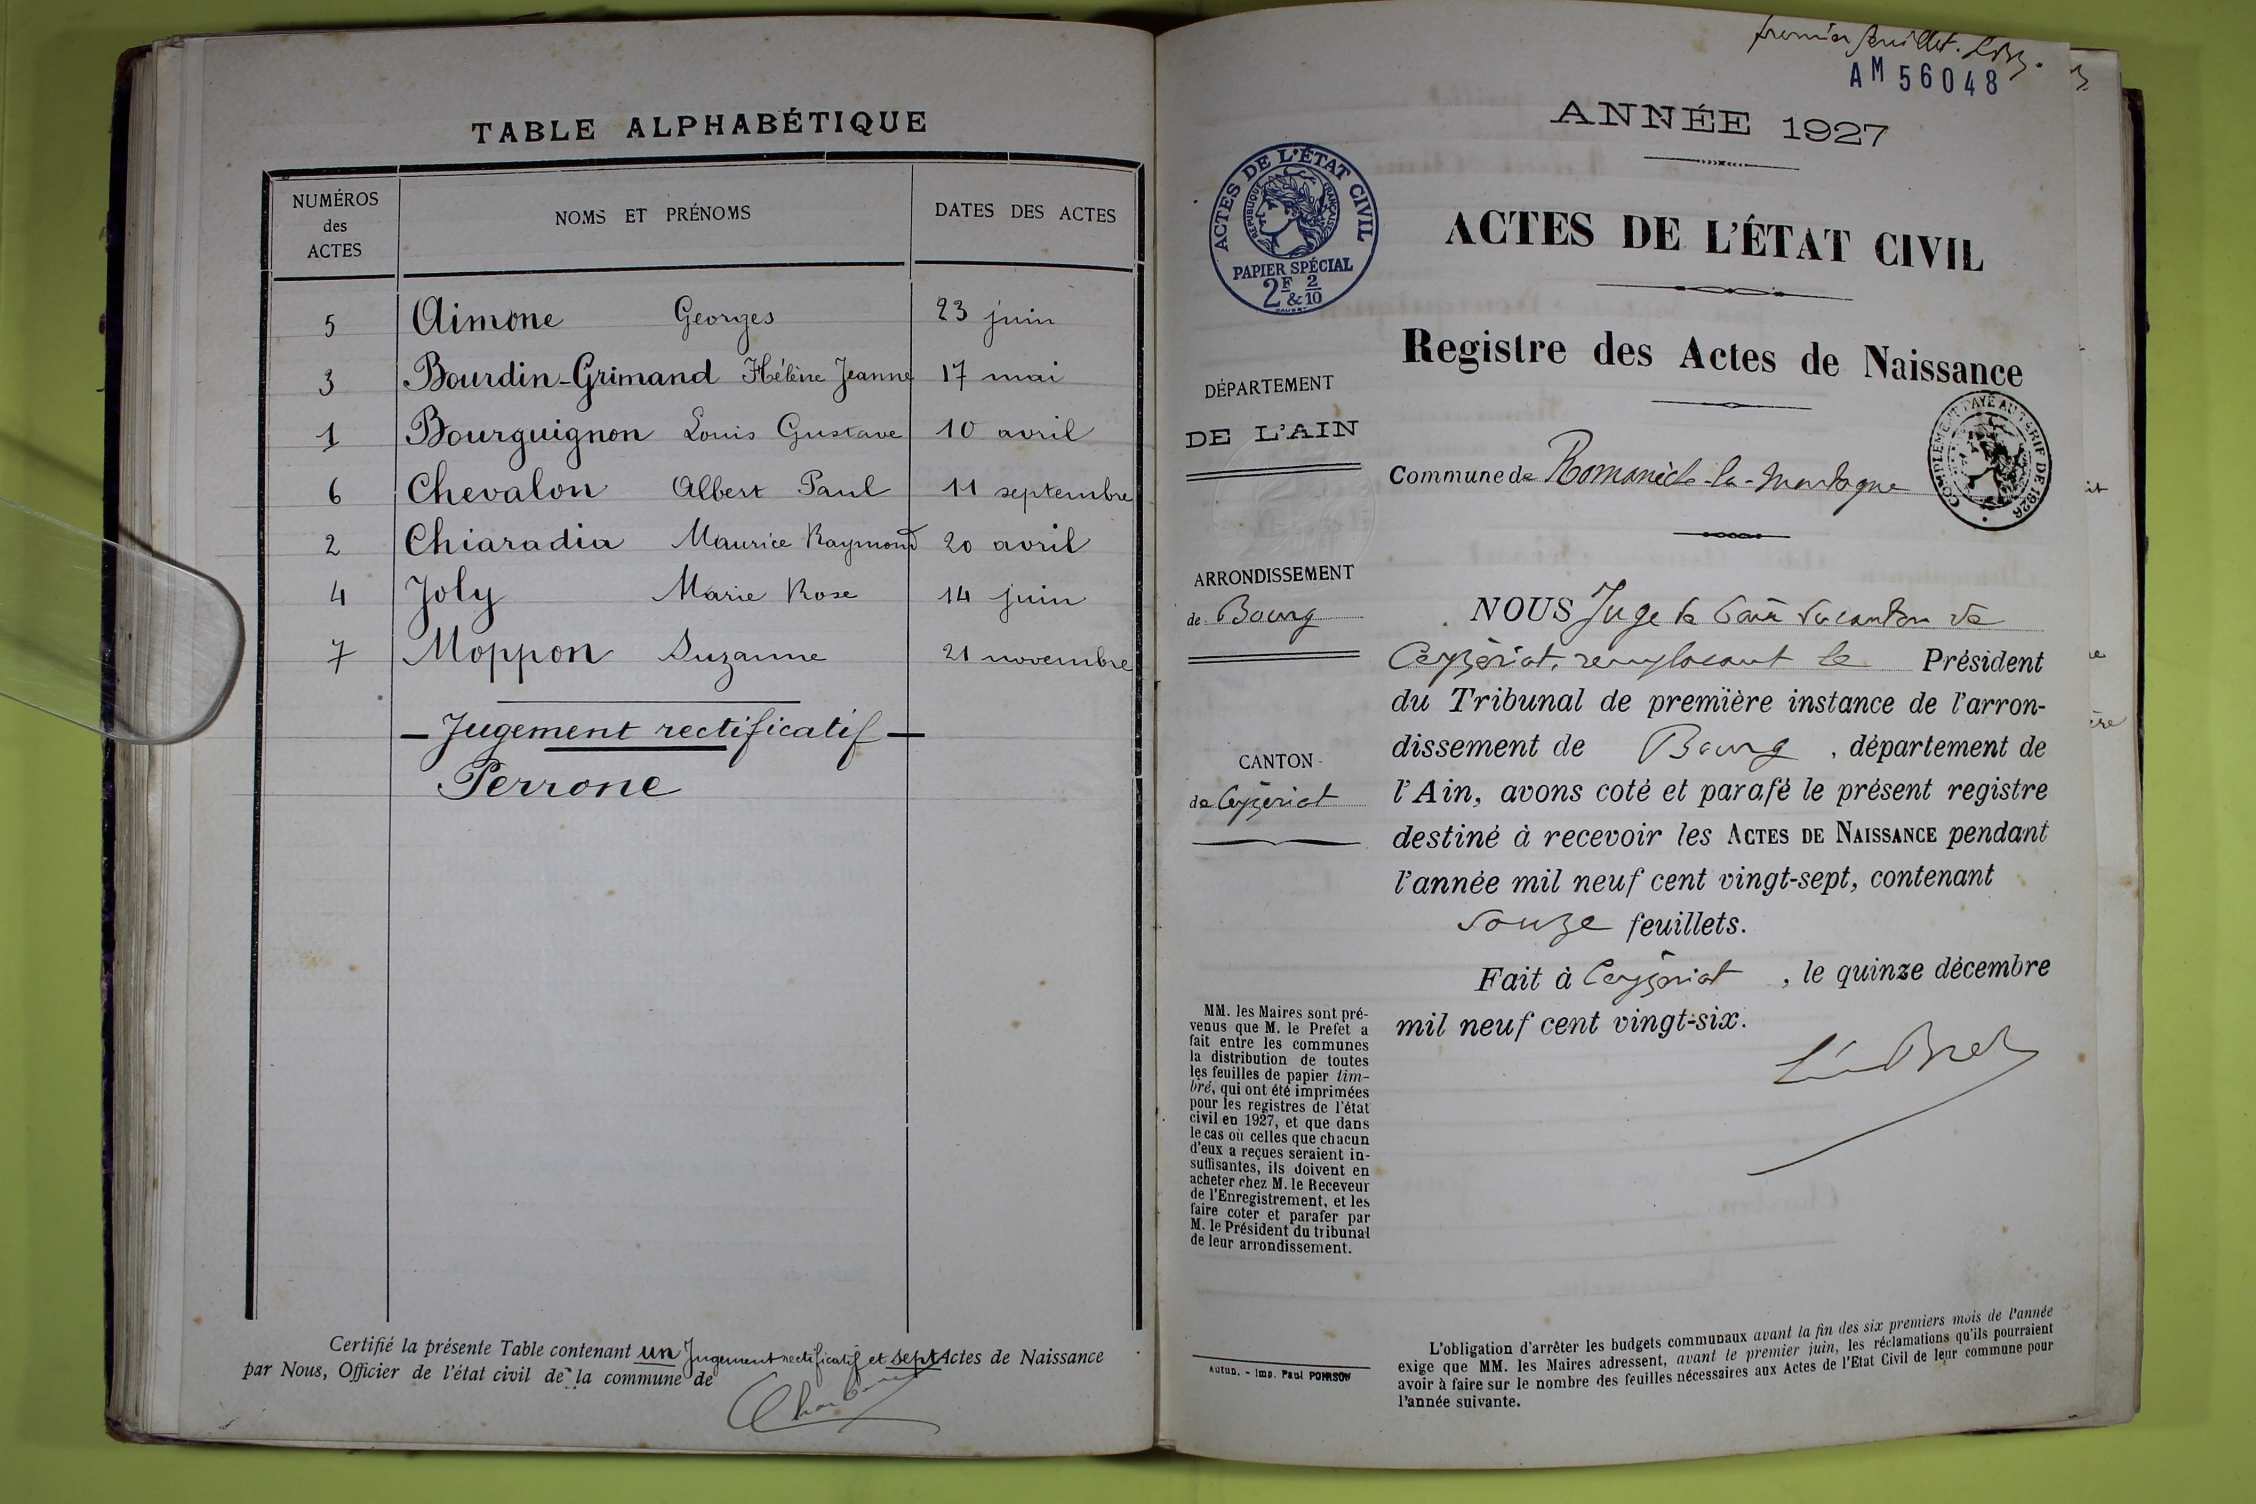 TABLE ALPHABÉTIQUE
NUMÉROS des ACTES NOMS ET PRÉNOMS DATES DES ACTES
5 Aimone Georges 23 juin
3 Bourdin-Grimand Hélène Jeanne 17 mai
1 Bourguignon Louis Gustave 10 avril
6 Chevalon Albert Paul 11 septembre
2 Chiaradia Maurice Raymond 20 avril
4 Joly Marie Rose 14 juin
7 Moppon Suzanne 21 novembre
— Jugement rectificatif —
Perrone
Certifié la présente Table contenant un Jugement rectificatif et sept Actes de Naissance
par Nous, Officier de l'état civil de la commune de
premier feuillet.
AM 56048
ANNÉE 1927
ACTES DE L'ÉTAT CIVIL
RÉPUBLIQUE FRANÇAISE
PAPIER SPÉCIAL
2F & 2/10
ACTES DE L'ÉTAT CIVIL
Registre des Actes de Naissance
DÉPARTEMENT
DE L'AIN
COMPLÉMENT PAYÉ AU TARIF DE 1926
Commune de Romanèche-la-Montagne
ARRONDISSEMENT
de Bourg
CANTON
de Ceyzériat
NOUS Juge de Paix du canton de
Ceyzériat, remplaçant le Président
du Tribunal de première instance de l'arron-
dissement de Bourg, département de
l'Ain, avons coté et parafé le présent registre
destiné à recevoir les ACTES DE NAISSANCE pendant
l'année mil neuf cent vingt-sept, contenant
douze feuillets.
Fait à Ceyzériat, le quinze décembre
mil neuf cent vingt-six.
MM. les Maires sont pré-
venus que M. le Préfet a
fait entre les communes
la distribution de toutes
les feuilles de papier tim-
bré, qui ont été imprimées
pour les registres de l'état
civil en 1927, et que dans
le cas où celles que chacun
d'eux a reçues seraient in-
suffisantes, ils doivent en
acheter chez M. le Receveur
de l'Enregistrement, et les
faire coter et parafer par
M. le Président du tribunal
de leur arrondissement.
Autun. - Imp. Paul
L'obligation d'arrêter les budgets communaux avant la fin des six premiers mois de l'année
exige que MM. les Maires adressent, avant le premier juin, les réclamations qu'ils pourraient
avoir à faire sur le nombre des feuilles nécessaires aux Actes de l'Etat Civil de leur commune pour
l'année suivante.